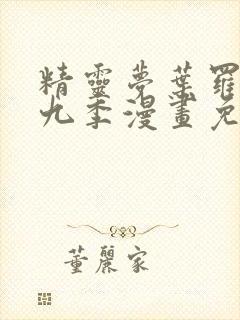 精靈夢葉羅
九季漫畫免
董麗家